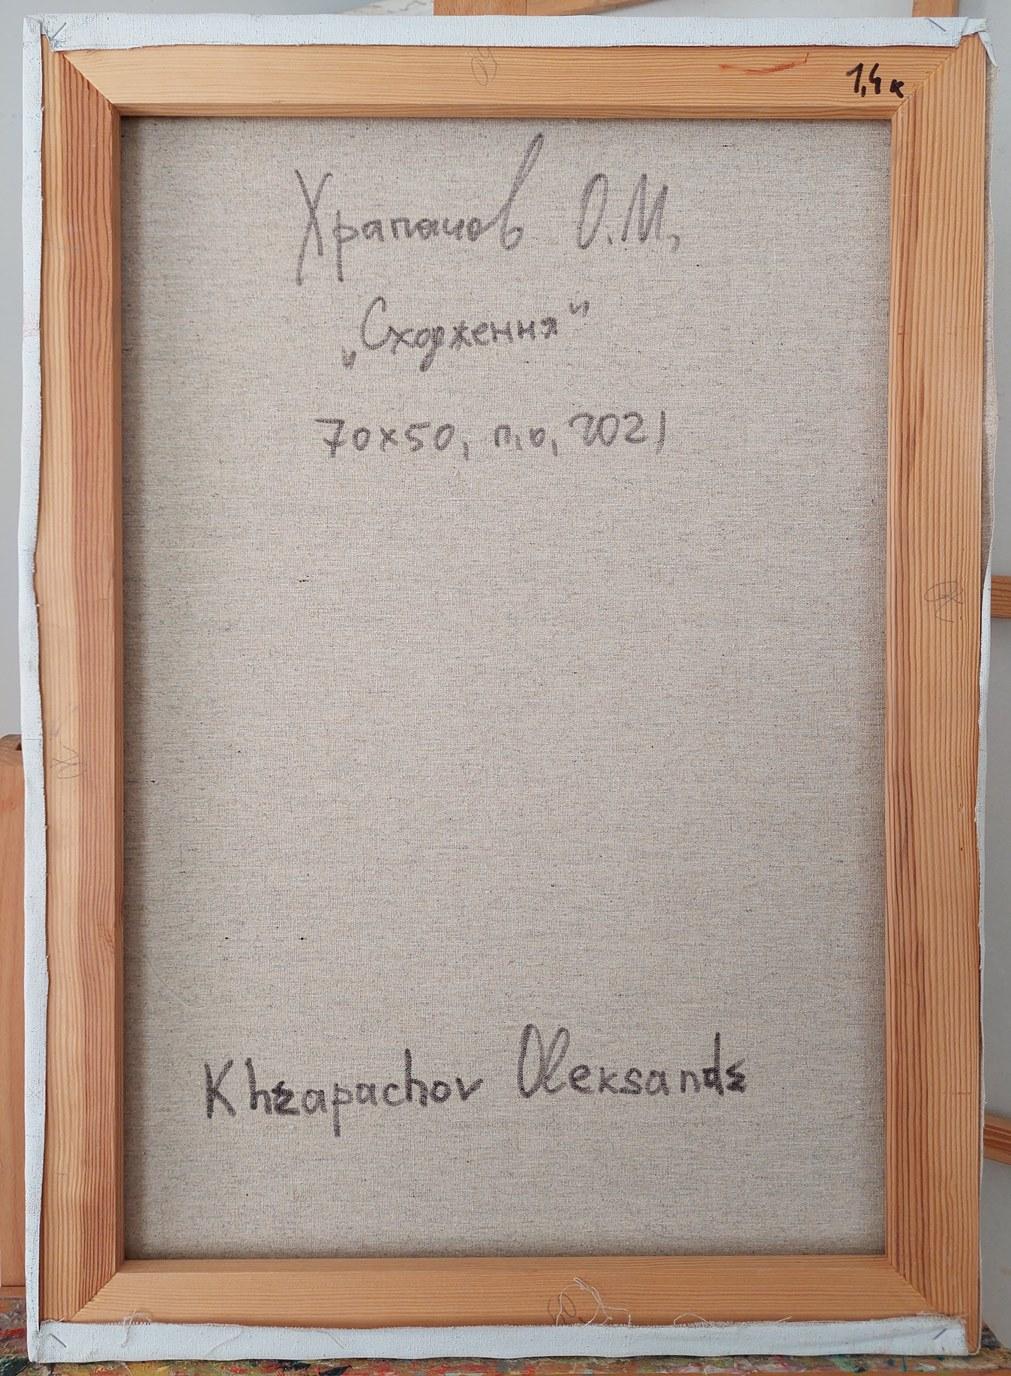 1,4к
Храпачов О.М,
„Сходження"
70x50, п,о, 2021
Khrapachov Oleksandr